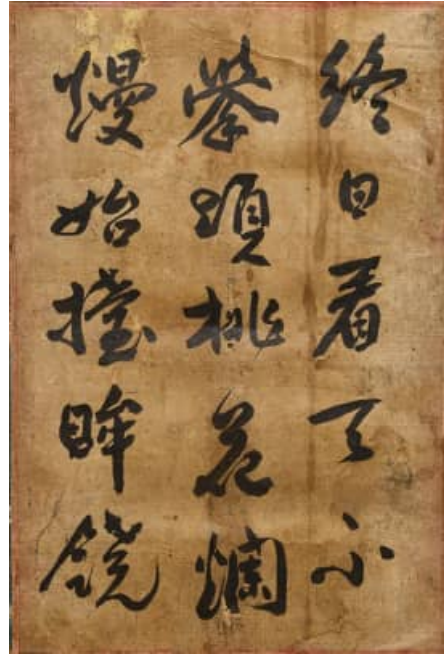 終日看天不
擧頭桃花爛
熳始擡眸饒